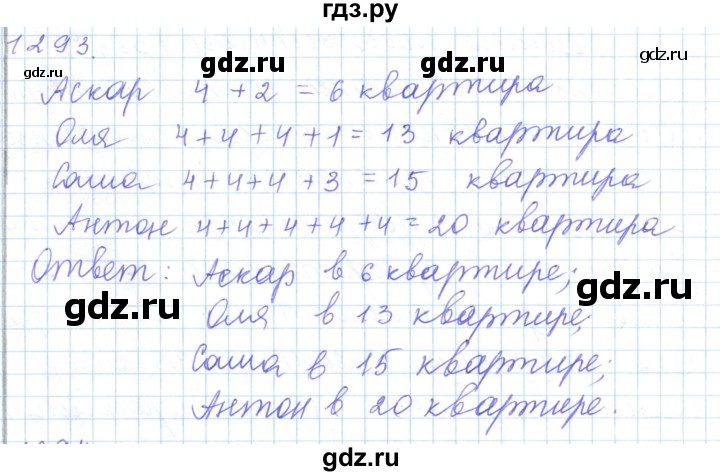 гдз.ру
1293.
gdz.ru gdz.ru gdz.ru
Аскар 4 + 2 = 6 квартира
Оля 4+4+4+1=13 квартира
gdz.ru gdz.ru
Саша 4+4+4+3=15 квартира
Антон 4+4+4+4+4=20 квартира
Ответ: Аскар в 6 квартире;
gdz.ru gdz.ru gdz.ru
Оля в 13 квартире;
Саша в 15 квартире;
gdz.ru gdz.ru
Антон в 20 квартире.
gdz.ru gdz.ru gdz.ru